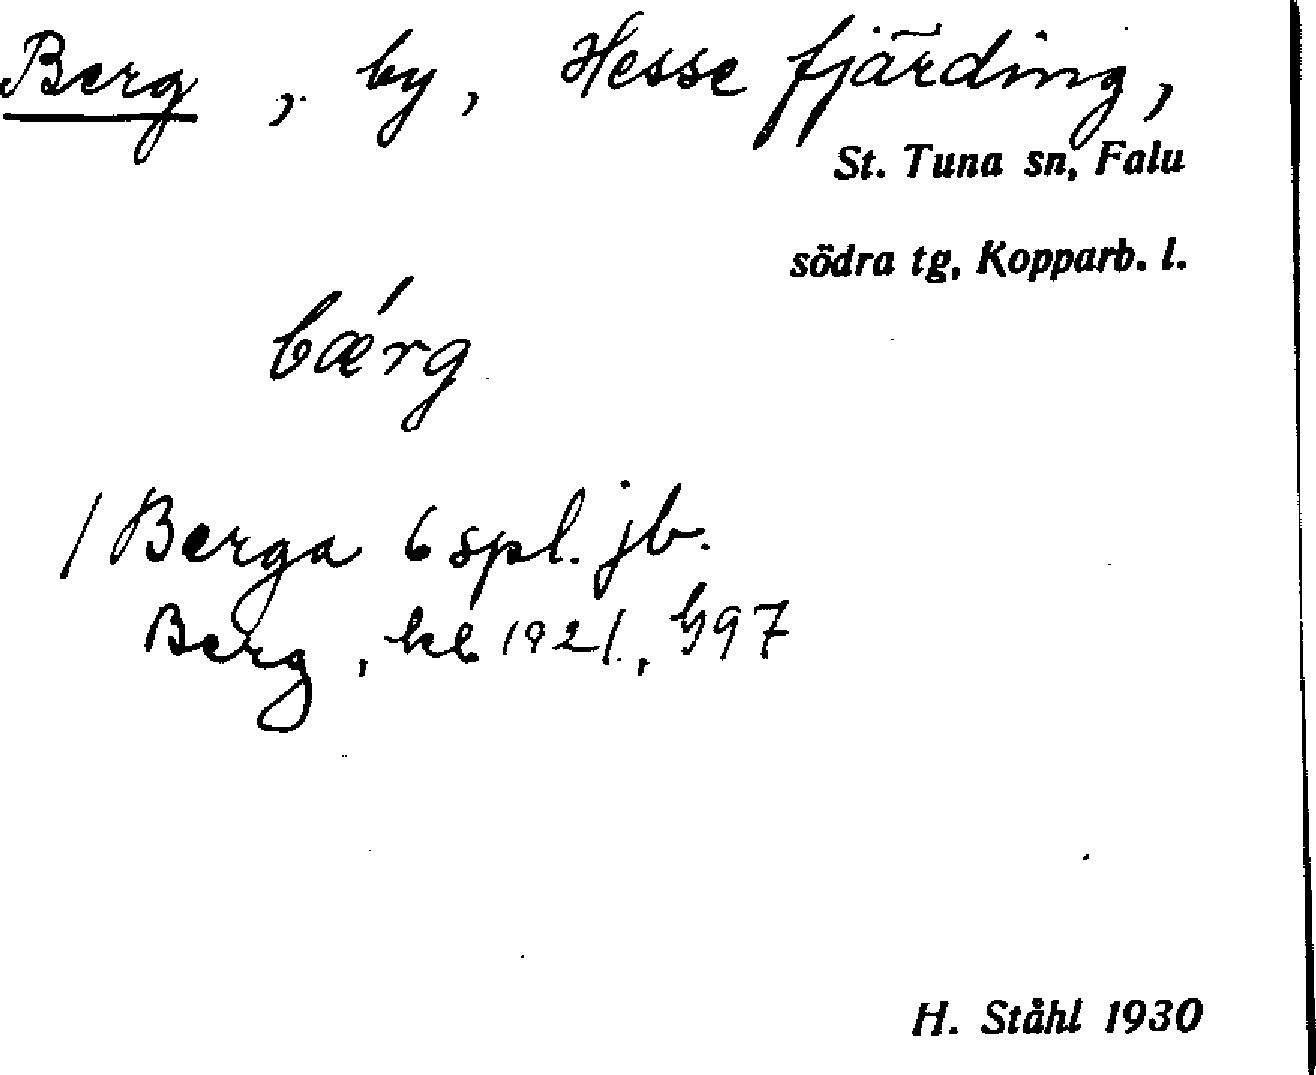 Berg, by, Hesse fjärding,
St. Tuna sn, Falu
södra tg, Kopparb. l.
bǽrg
/ Berga 6 spl. jb.
Berg, kb 1921, G97
H. Ståhl 1930